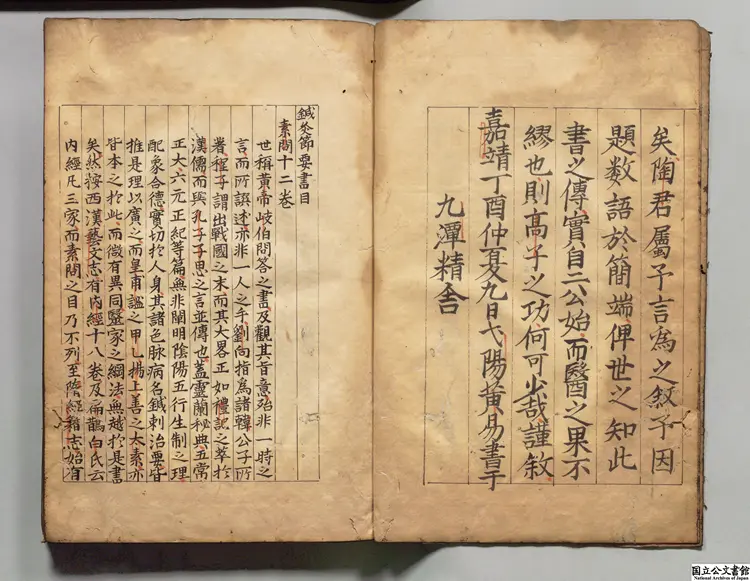 矣陶君屬予言為之敘予因
題数語於簡端俾世之知此
書之傳實自二公始而醫之果不
繆也則髙子之功何可少哉謹敘
嘉靖丁酉仲夏九日弋陽黄易書于
九潭精舍
鍼灸節要書目
素問十二巻
世稱黄帝岐伯問答之書及觀其音意殆非一時之
言而所譔述亦非一人之手劉向指為諸韓公子所
著程子謂出戰國之末而其大畧正如禮記之萃於
漢儒而與孔子子思之言並傳也盖靈蘭秘典五常
正大六元正紀等篇無非闡明陰陽五行生制之理
配象合德實切於人身其諸色脉病名鍼刺治要皆
推是理以廣之而皇甫謐之甲乙楊上善之太素亦
皆本之於此而微有異同醫家之綱法無越於是書
矣然按西漢藝文志有内經十八巻及扁鵲白氏云
内經凡三家而素問之目乃不列至隋經籍志始有
国立公文書館
National Archives of Japan